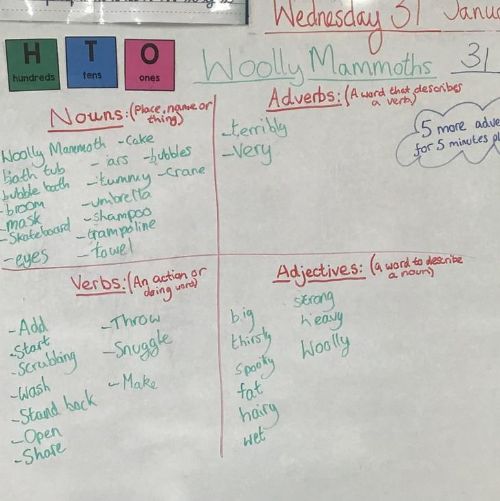 Wednesday 31
H T O
hundreds tens ones
Woolly Mammoths 31
Nouns: (Place, name or thing)
Woolly Mammoth -cake
bath tub - jars -bubbles
bubble bath -tummy -crane
-broom -umbrella
mask -shampoo
-Skateboard -trampoline
-eyes -towel
Adverbs: (A word that describes
a verb)
-terribly
-Very
5 more adve
for 5 minutes pl
Verbs: (An action or
doing word)
-Add -Throw
-Start -Snuggle
-Scrubbing
-Wash -Make
-Stand back
-Open
-Share
Adjectives: (a word to describe
a noun)
big strong
thirsty heavy
spooky Woolly
fat
hairy
wet